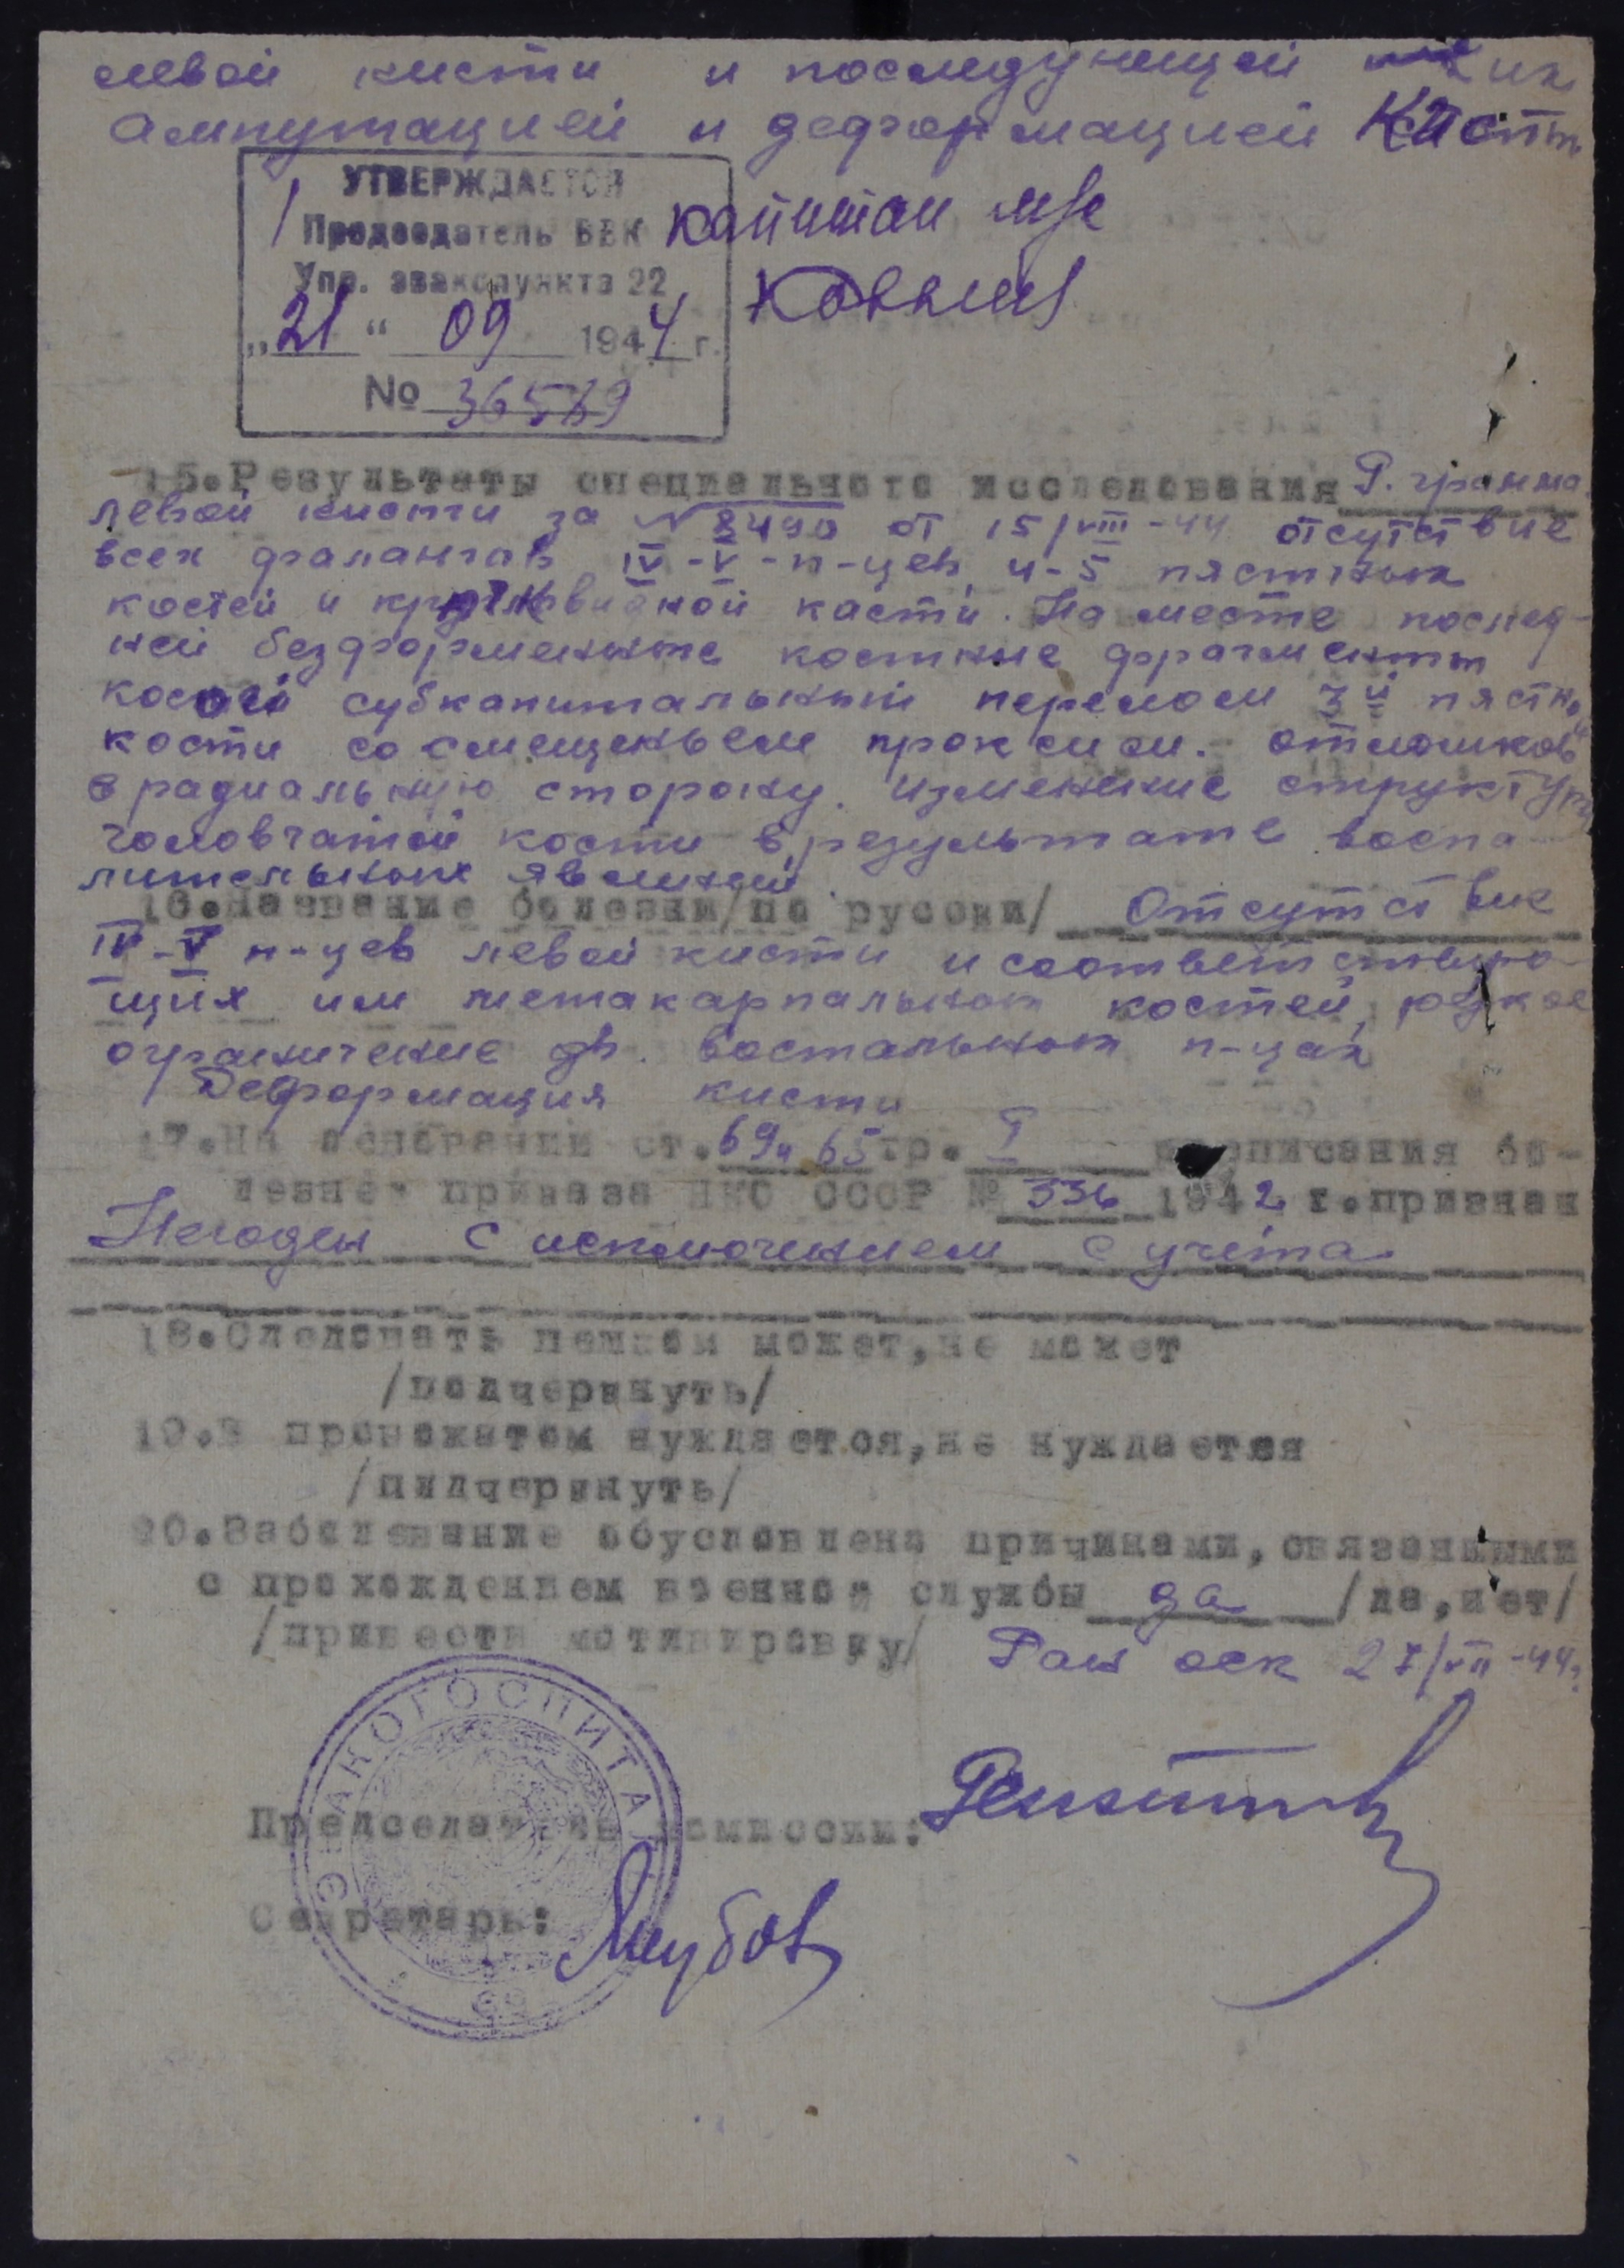 левой кисти и последующей их
ампутацией и деформацией Кисти
УТВЕРЖДАЕТСЯ
Председатель ВВК капитан м/с
Упр. эвакопункта 22
„21“ 09 1944 г.
№ 36589
15.Результаты специального исследования Р. грамма
левой кисти за N 8490 от 15/VIII-44 отсутствие
всех фалангов IV-V-п-цев, 4-5 пястных
костей и крючковидной кости. На месте послед-
ней безформенные костные фрагменты
косой субкапитальный перелом 3й пястн.
кости со смещеньем проксим. отломков
в радиальную сторону. Изменение структуры
головчатой кости в результате воспа-
лительных явлений
16.Название болезни/по русски/ Отсутствие
IV-V п-цев левой кисти и соответствую-
щих им метакарпальных костей, резкое
ограничение дв. востальных п-цах
Деформация кисти
17.На основании ст.69и 65гр. I расписания бо-
лезней приказа НКО СССР № 336 1942 г.признан
Негоден с исключением с учёта
18.Следовать пешком может,не может
/подчеркнуть/
19.В провожатом нуждается,не нуждается
/подчеркнуть/
20.Заболевание обусловлено причинами,связанными
с прохождением военной службы да /да,нет/
/привести мотивировку/ Ран оск 27/VII-44г
ЭВАКОГОСПИТАЛ
Председатель комиссии:
Секретарь: